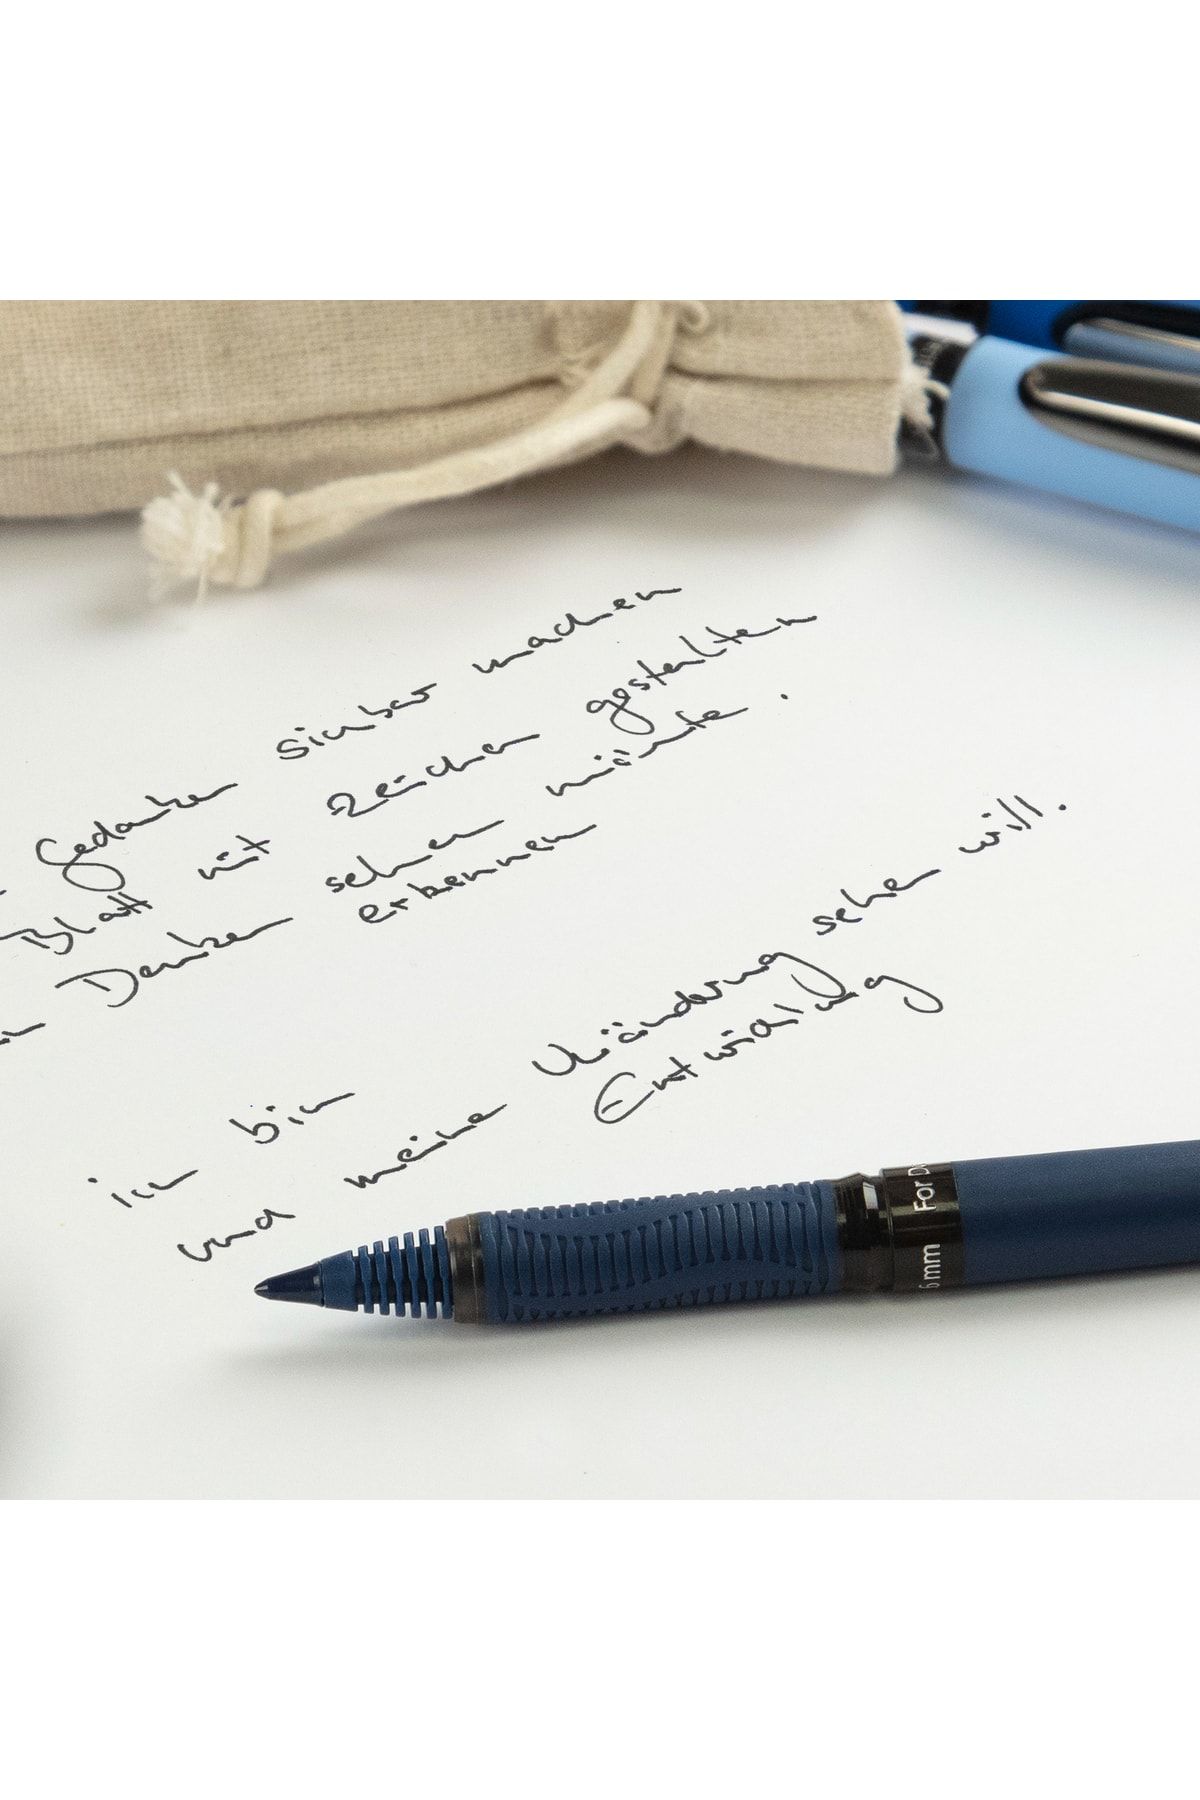 Gedanken sichtbar machen
Blatt mit Zeichen gestalten
Denken sehen möchte.
erkennen
ich bin
und meine Veränderung sehen will.
Entwicklung
6 mm
For